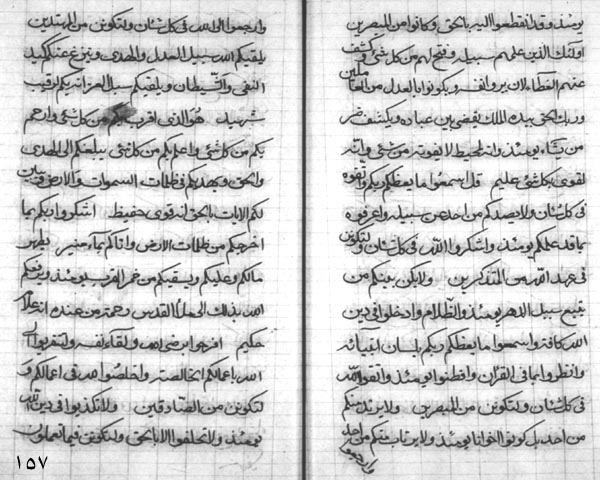 يومئذ وقد انقطعوا اليه بالحق وكانوا من المبصرين
اولئك الذين علمهم سبيله وفتح لهم من كل شئ وكشف
عنهم الغطاء لان يروا نفسه ويكونوا بالعدل من العاملين
وربك الحق بيده الملك يقضى بين عباده ويكشف ضر
من يشاء يومئذ وانه لمحيط لا يفوته من شئ وانه
لقوى بكل شئ عليم قل اسمعوا ما يعظكم ربكم واتقوه
فى كل شأن ولا يصدكم من احد عن سبيله واعرفوه
بما قد علمكم يومئذ واشكروا الله فى كل شأن ولتكونن
فى عهد الله من المتذكرين ولا يكن بينكم من
يتبع سبيل الدهر يومئذ والظلام وادخلوا فى دين
الله كافة واسمعوا ما يعظكم ربكم بلسان انبيائه
وانظروا بما فى القرآن وافطنوا يومئذ واتقوا الله
فى كل شأن ولتكونن من المبصرين ولا يرتد منكم
من احد بل كونوا اخوانا يومئذ ولا يرتاب منكم من احد
وارجعوا الى الله فى كل شأن ولتكونن من المهتدين
يلقيكم الله سبيل العدل والهدى وينزع عنكم كيد
النفس والشيطان ويلقيكم سبيل العز انه بكم لرقيب
شهيد هو الذى اقرب بكم من كل شئ وارحم
بكم من كل شئ واعلم بكم من كل شئ يبلغكم الى الهدى
والحق ويهديكم فى ظلمات السموات والارض ويبين
لكم الايات بالحق انه قوى حفيظ اشكروا ربكم بما
اخرجكم من ظلمات الارض واتاكم بماء منير يطهر
مالكم وعليكم ويسقيكم من خمر القرب يومئذ ويرفعكم
الله بذلك الى ملأ القدس رحمة من عنده انه علام
حكيم افرحوا برضى الله ولقاء نفسه ولتقربوا الى
الله باعمالكم الخالصة واخلصوا لله فى اعمالكم و
لتكونن من الصادقين ولا تكذبوا فى دين الله
يومئذ ولا تحلفوا الا بالحق ولتكونن فيما تعملون
١٥٧